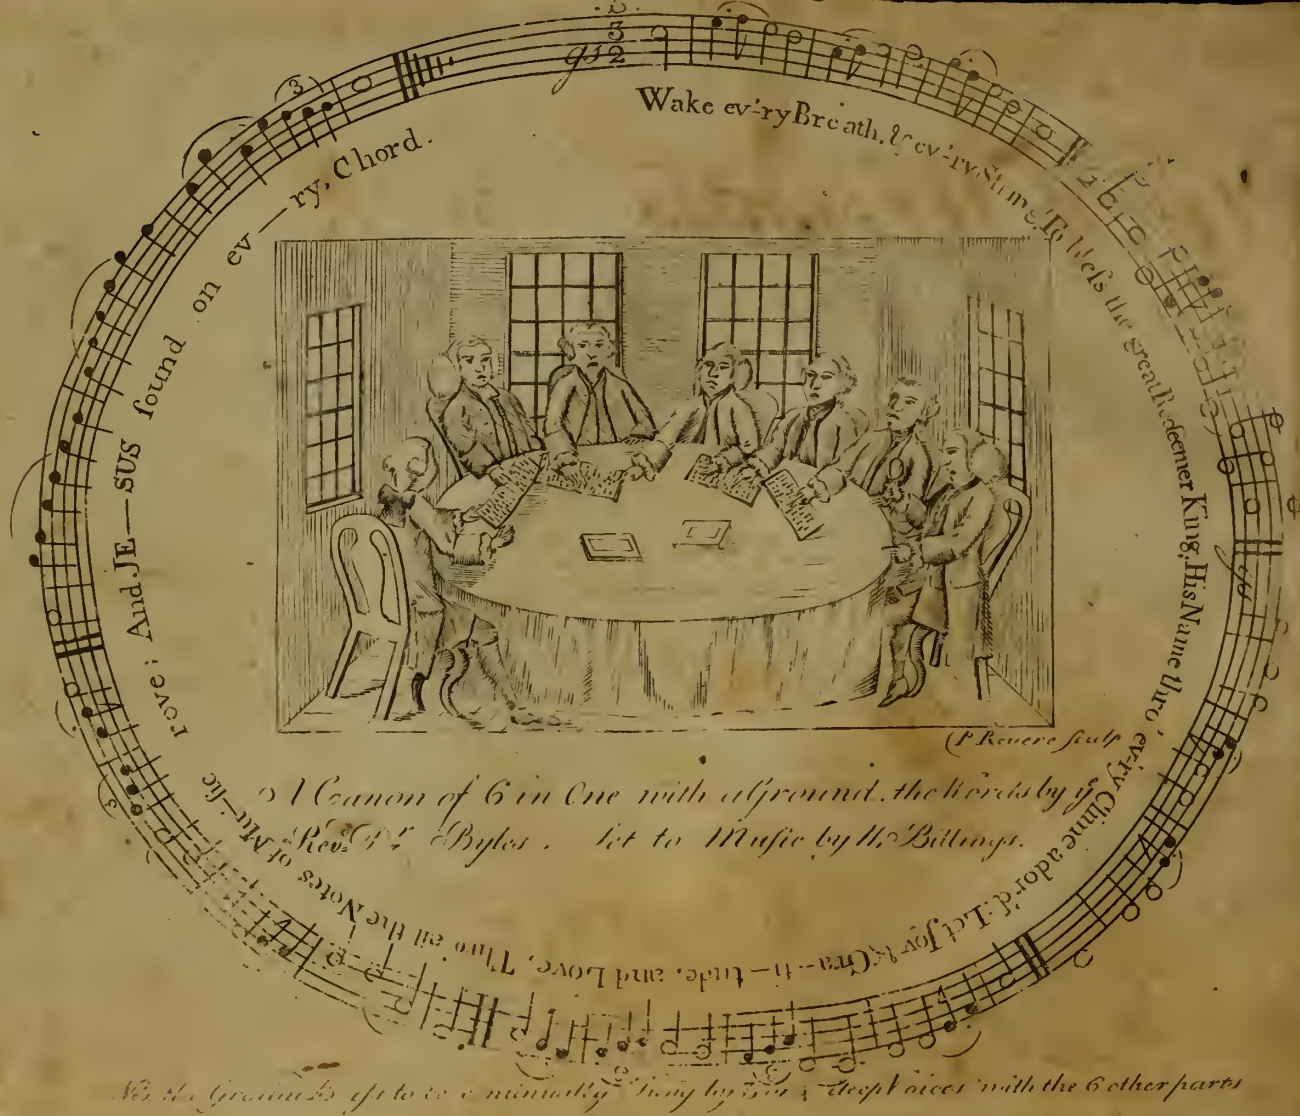 Wake ev'ry Breath, & ev'ry String, To bleſs the great Redeemer King, His Name thro' ev'ry Clime ador'd: Let Joy & Gra--ti--tude, and Love, Thro' all the Notes of Mu--ſic rove: And JE--SUS ſound on ev--ry, Chord.
P Revere ſculp
A Canon of 6 in One with a Ground. the Words by yͤ
Revᵈ. Dʳ. Byles. Set to Muſic by W. Billings.
NB. the Ground to be continually Sung by 3 or 4 deep Voices with the 6 other parts